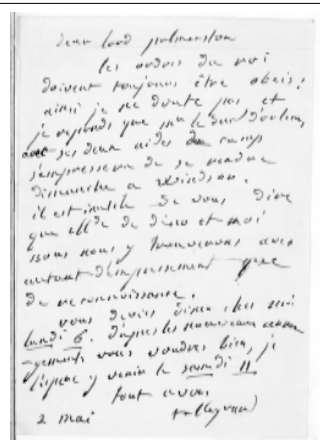 dear lord palmerston
les ordres du roi
doivent toujours être obeis;
ainsi je ne doute pas et
je reponds que m le duc d'orleans,
avec ses deux aides de camp
s'empressera de se rendre
dimanche a Windsor.
il est inutile de vous dire
que mde de dino et moi
nous nous y trouverons avec
autant d'empressement que
de reconnoissance.
vous deviez diner chez moi
lundi 6. d'après les nouveaux arran
gements vous voudrez bien, je
l'espere y venir le samedi 11
tout a vous
2 mai talleyrand